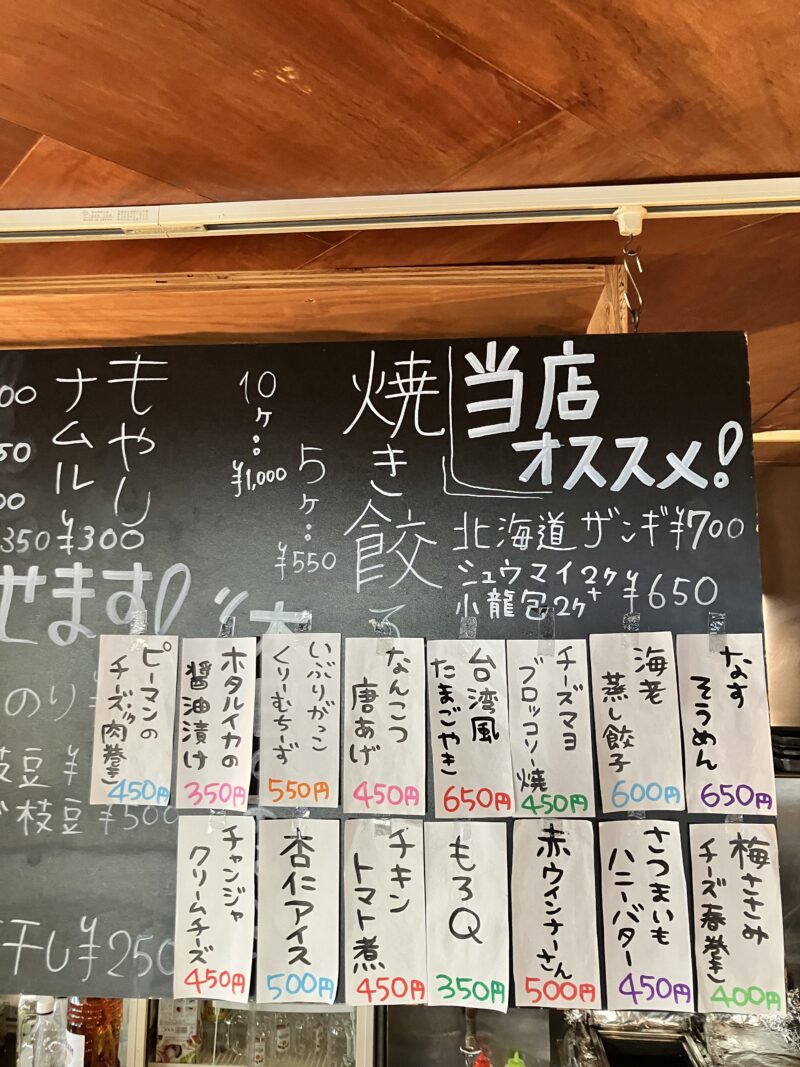 当店
オススメ!
北海道ザンギ¥700
シュウマイ2ヶ
小龍包2ヶ+
¥650
焼き餃子
5ヶ:
¥550
10ヶ:
¥1,000
もやし
ナムル
¥300
00
50
00
350
せます!
のり¥
枝豆¥
枝豆¥500
干し¥250
なす
そうめん
650円
海老
蒸し餃子
600円
チーズマヨ
ブロッコリー焼
450円
台湾風
たまごやき
650円
なんこつ
唐あげ
450円
いぶりがっこ
くりーむちーず
550円
ホタルイカの
醤油漬け
350円
ピーマンの
チーズ肉巻き
450円
梅ささみ
チーズ春巻き
400円
さつまいも
ハニーバター
450円
赤ウィンナーさん
500円
もろQ
350円
チキン
トマト煮
450円
杏仁アイス
500円
チャンジャ
クリームチーズ
450円